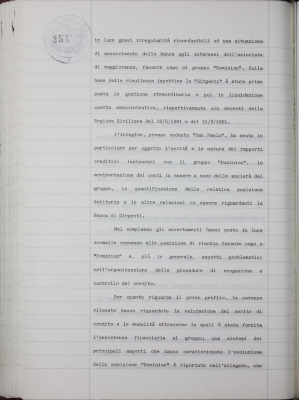 251
in luce gravi irregolarità riconducibili ad una situazione
di asservimento della Banca agli interessi dell'azionista
di maggioranza, facente capo al gruppo "Dominion". Sulla
base delle risultanze ispettive la "Girgenti" è stata prima
posta in gestione straordinaria e poi in liquidazione
coatta amministrativa, rispettivamente con decreti della
Regione Siciliana del
L'indagine, presso codesto "San Paolo", ha avuto in
particolare per oggetto l'entità e la natura dei rapporti
creditizi instaurati con il gruppo "Dominion", la
movimentazione dei conti in essere a nome delle società del
gruppo, la quantificazione della relativa posizione
debitoria e le altre relazioni in essere riguardanti la
Banca di Girgenti.
Nel complesso gli accertamenti hanno posto in luce
anomalie connesse alle posizione di rischio facente capo a
"Dominion" e, più in generale, aspetti problematici
nell'organizzazione delle procedure di erogazione e
controllo del credito.
Per quanto riguarda il primo profilo, le carenze
rilevate hanno riguardato la valutazione del merito di
credito e le modalità attraverso le quali è stata fornita
l'assistenza finanziaria al gruppo; una sintesi dei
principali aspetti che hanno caratterizzato l'evoluzione
della posizione "Dominion" è riportata nell'allegato, che